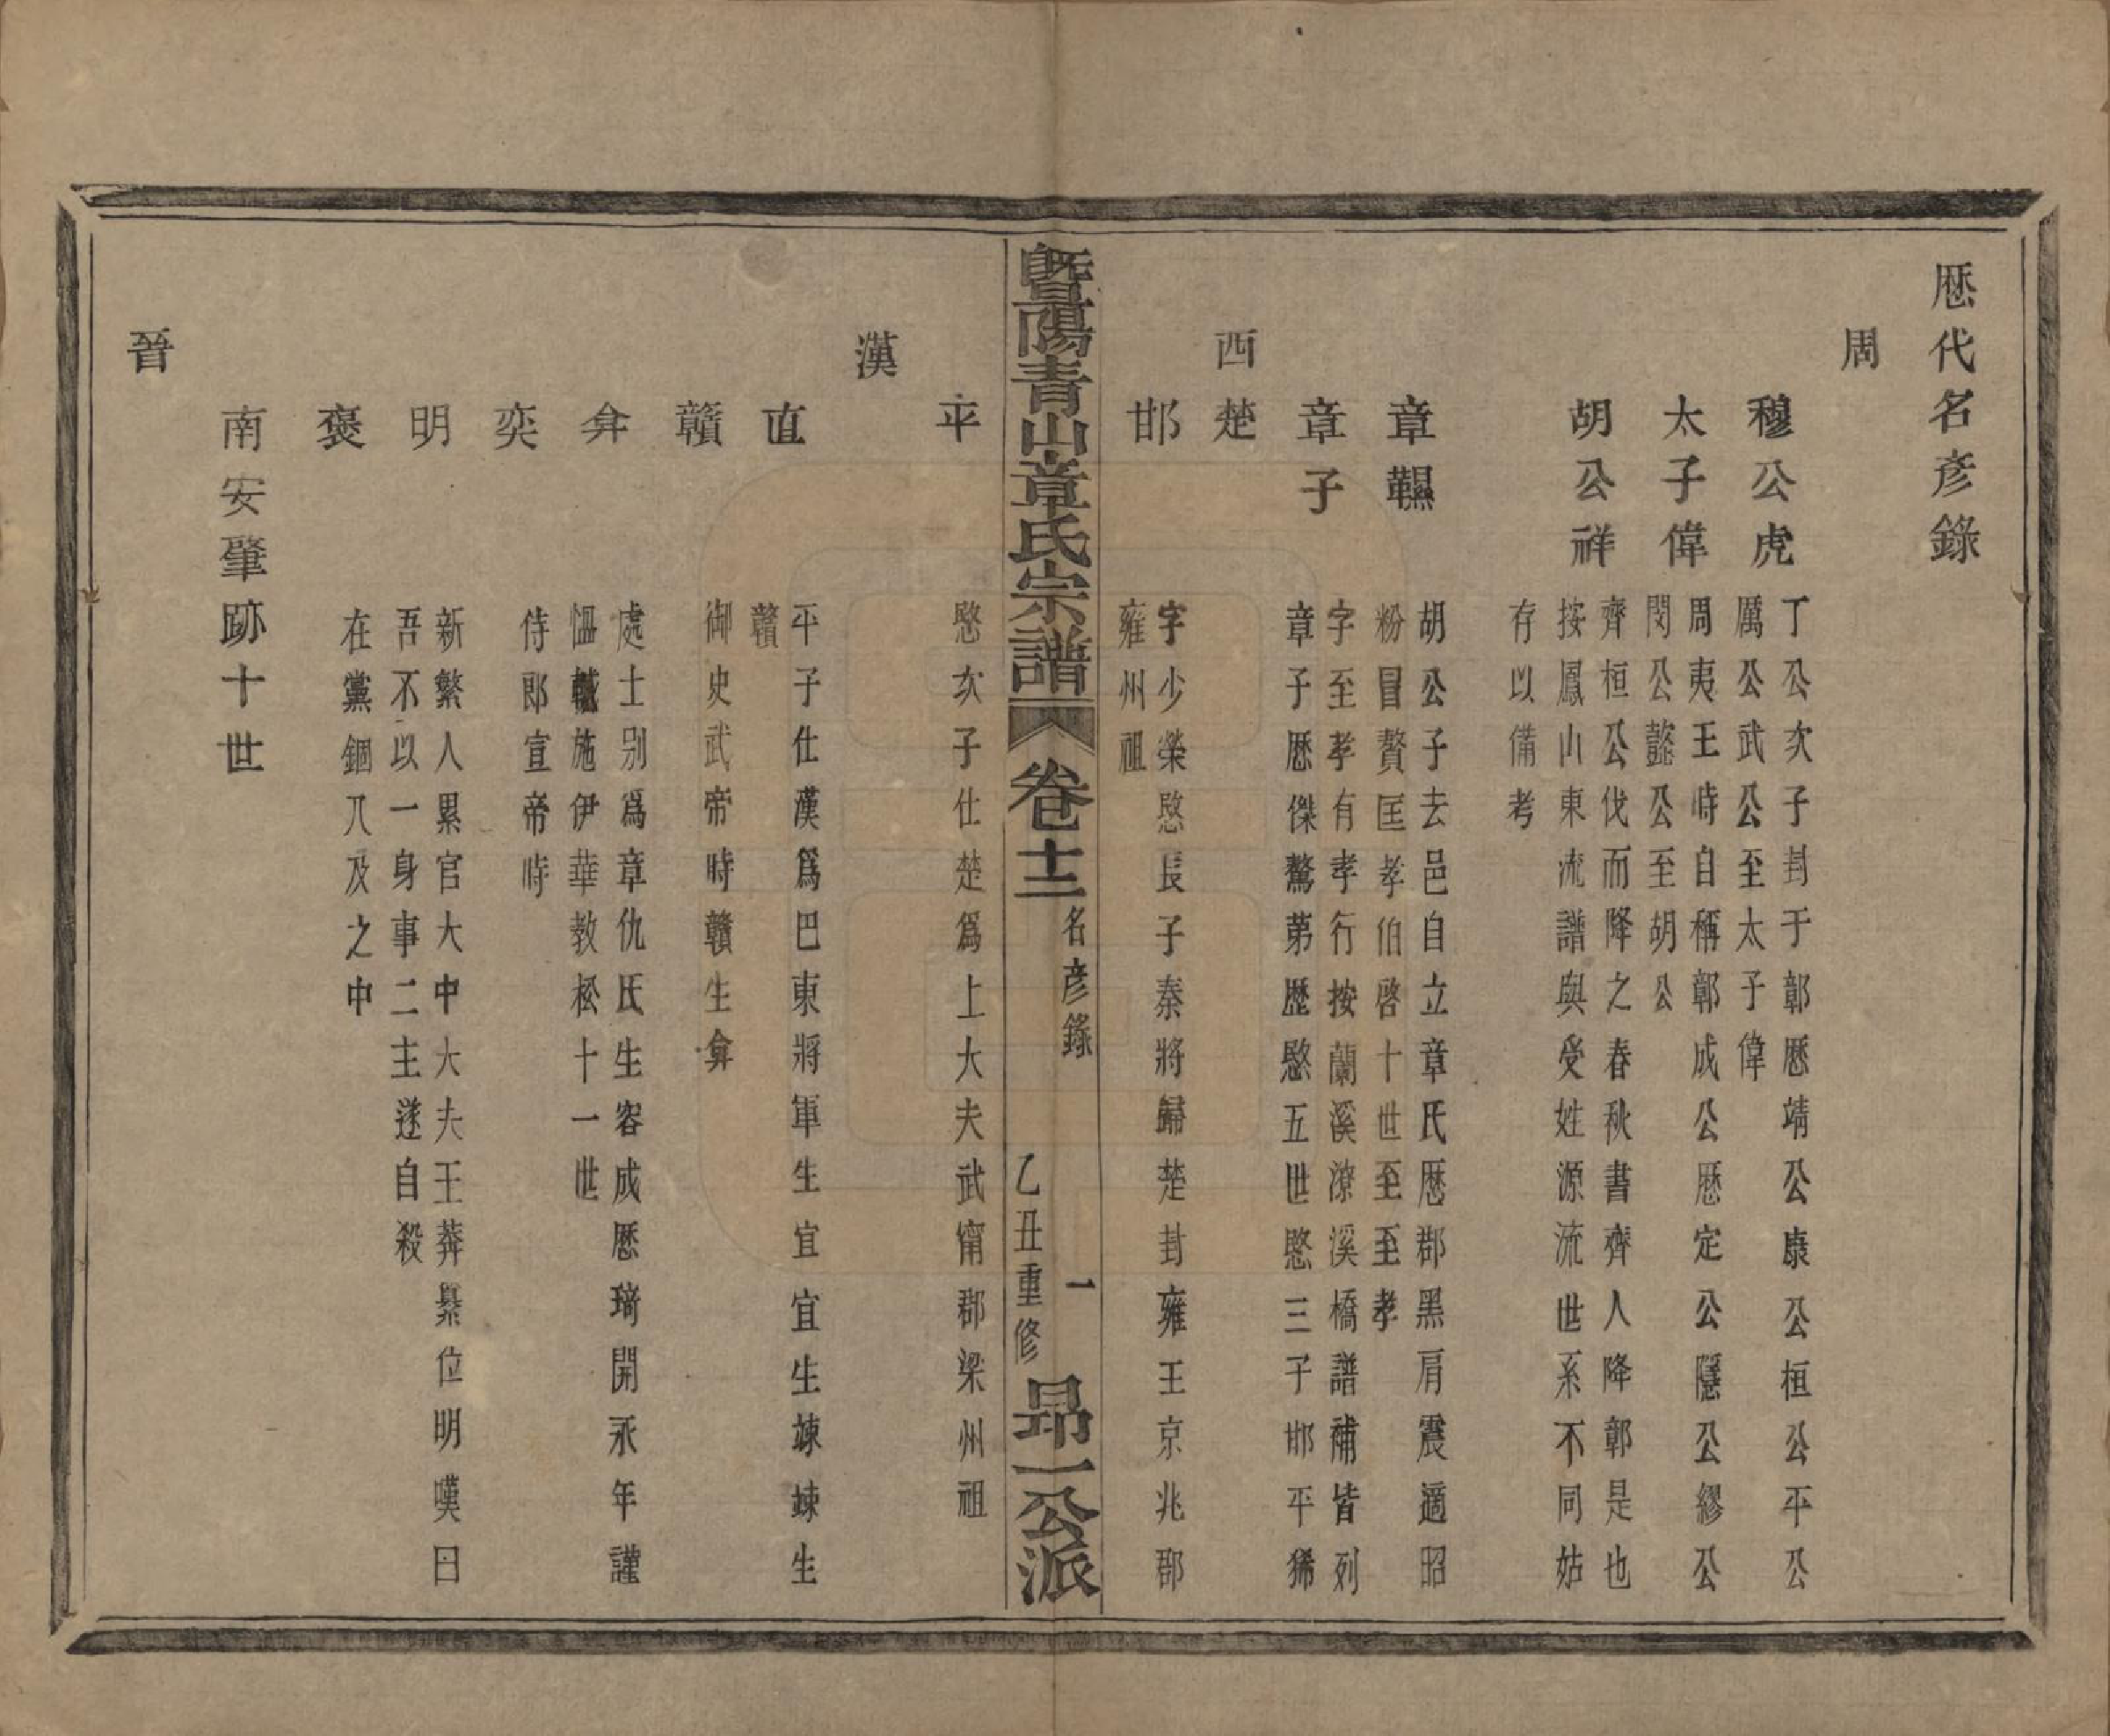 歷代名彦錄
周
穆公虎
丁公次子封于鄣歷靖公康公桓公平公
厲公武公至太子偉
太子偉
周夷王時自稱鄣成公歷定公隱公繆公
閔公懿公至胡公
胡公祥
齊桓公伐而降之春秋書齊人降鄣是也
按鳳山東流譜與受姓源流世系不同姑
存以備考
章韅
胡公子去邑自立章氏歷郡黑肩震適昭
粉冒贅匡孝伯啓十世至至孝
章子
字至孝有孝行按蘭溪潦溪橋譜補皆列
章子歷傑驁第歷愍五世愍三子邯平豨
西楚
邯
字少榮愍長子秦將歸楚封雍王京兆郡
雍州祖
暨陽青山章氏宗譜
卷十二
名彦錄
一
乙丑重修
昂一公派
平
愍次子仕楚爲上大夫武甯郡梁州祖
漢
直
平子仕漢爲巴東將軍生宜宜生竦竦生
贛
贛
御史武帝時贛生弇
弇
處士别爲章仇氏生容成歷琦開永年謹
愠施伊華教松十一世
奕
侍郎宣帝時
明
新繁人累官大中大夫王莽纂位明嘆曰
吾不以一身事二主遂自殺
褒
在黨錮八及之中
南安肇跡十世
晉